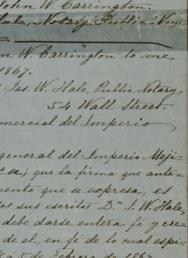 John W. Carrington.
Hale, Notary Public New
n W. Carrington to me
1867.
Jas. W. Hale, Public Notary.
54 Wall Street.
mercial del Imperio
general del Imperio Meji-
ca, que la firma que ante-
mento que se espresa, es
os sus escritos Dn. J. W. Hale,
debe darse entera fé y cre
de él, en fe de lo cual espi-
á 5 de Febrero de 1867